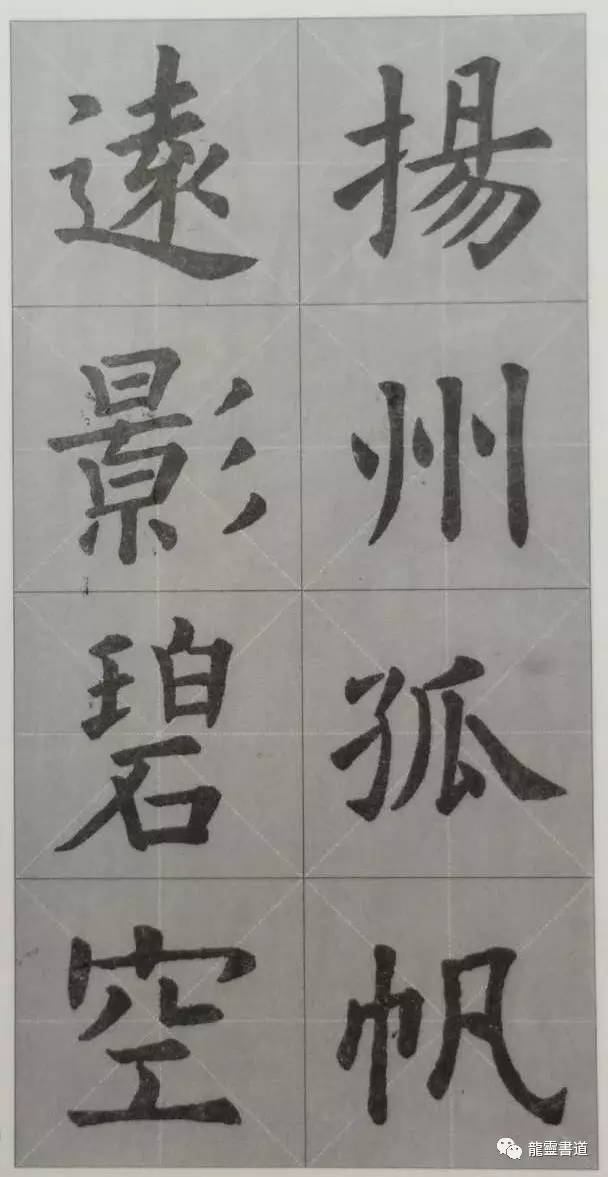 揚州孤帆
遠影碧空
龍靈書道